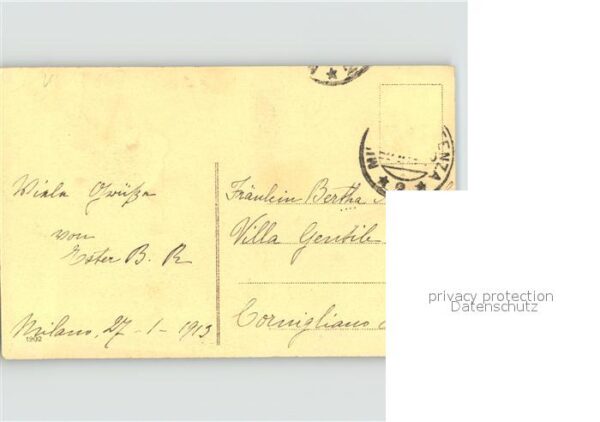 Viele Grüße
von
Ester B. R
Milano, 27 - 1 - 1913
1902
ENZA
MI
Fräulein Bertha
Villa Gentile
Cornigliano
privacy protection
Datenschutz